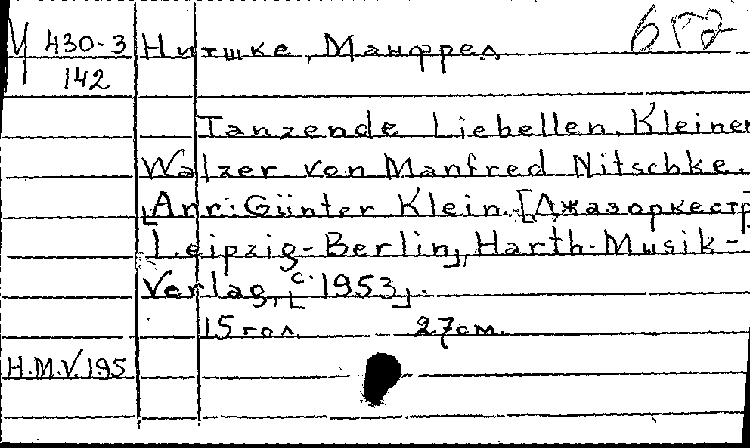 М 430-3 Нитшке, Манфред
142
Tanzende Liebellen. Kleiner
Walzer von Manfred Nitschke.
Arr.: Günter Klein. [Джазоркестр]
Leipzig-Berlin, Harth-Musik-
Verlag, [c. 1953].
15 гол. 27 см.
H.M.V. 195